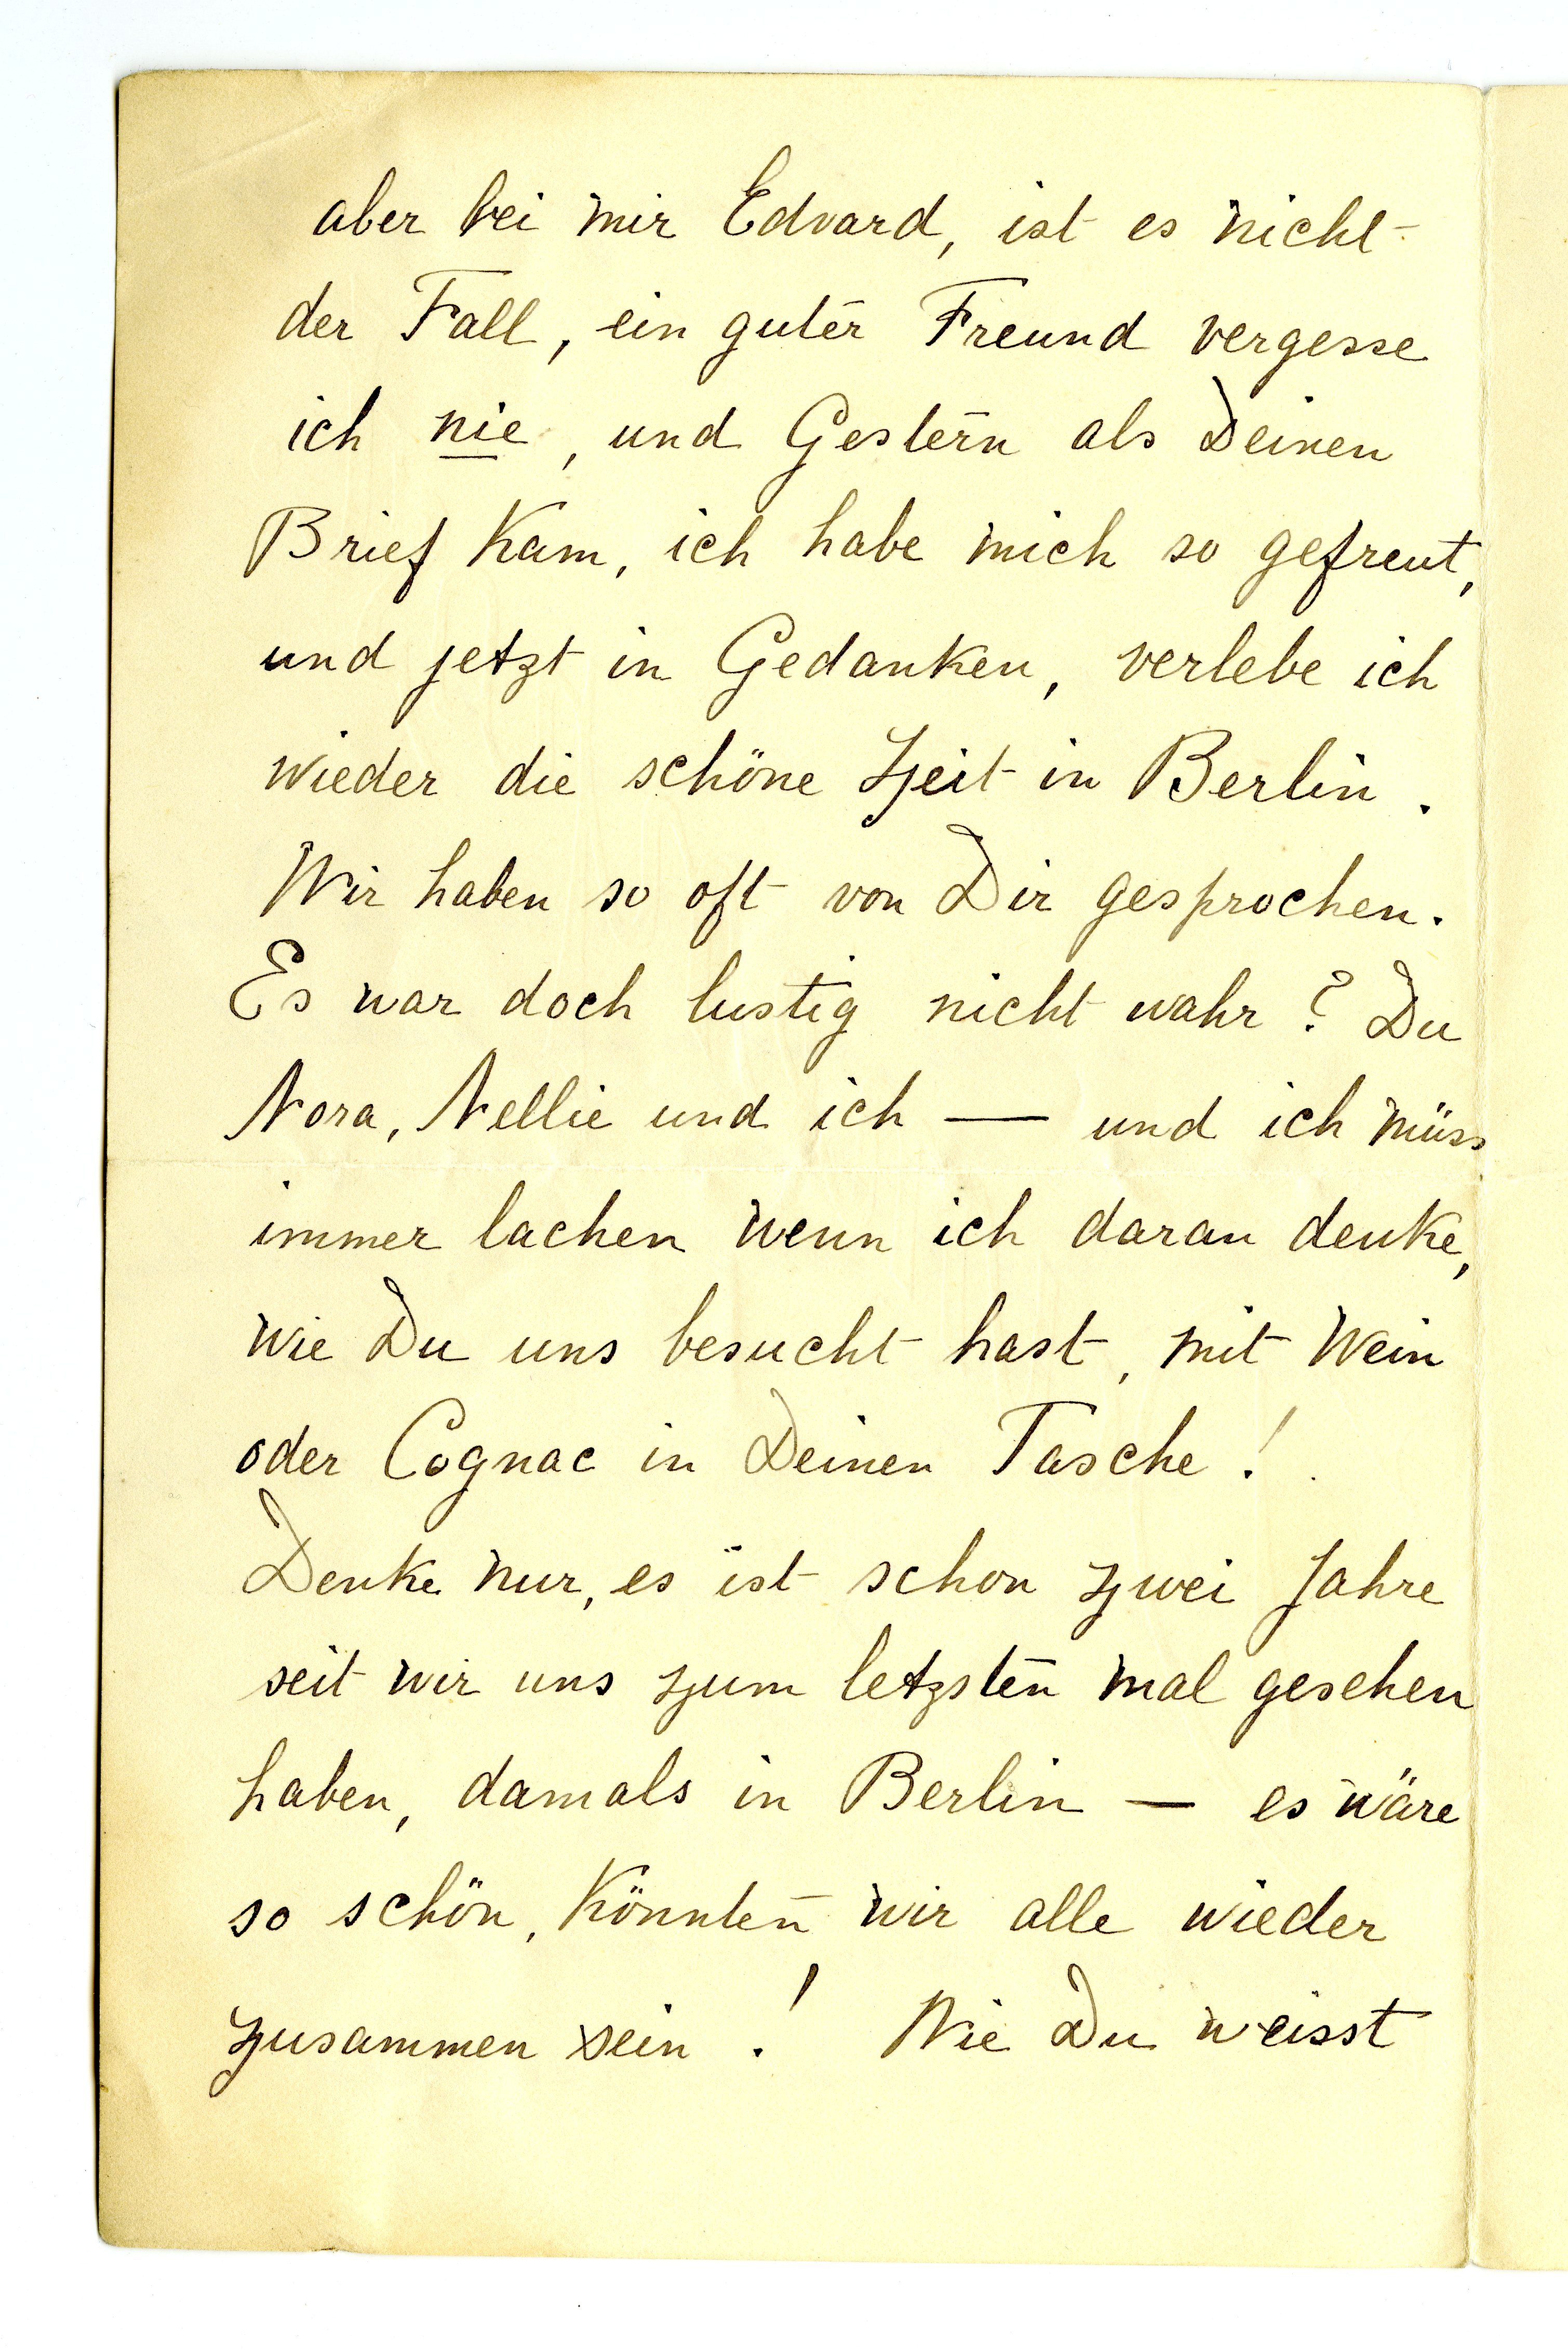 aber bei mir Edvard, ist es nicht
der Fall, ein guter Freund vergesse
ich nie, und Gestern als Deinen
Brief Kam, ich habe mich so gefreut,
und jetzt in Gedanken, verlebe ich
wieder die schöne Zeit in Berlin.
Wir haben so oft von Dir gesprochen.
Es war doch lustig nicht wahr? Du
Nora, Nellie und ich — und ich müss
immer lachen wenn ich daran denke,
wie Du uns besucht hast, mit Wein
oder Cognac in Deinen Tasche!
Denke nur, es ist schon zwei Jahre
seit wir uns zum letzsten mal gesehen
haben, damals in Berlin — es wäre
so schön, Könnten wir alle wieder
zusammen sein! Wie Du weisst